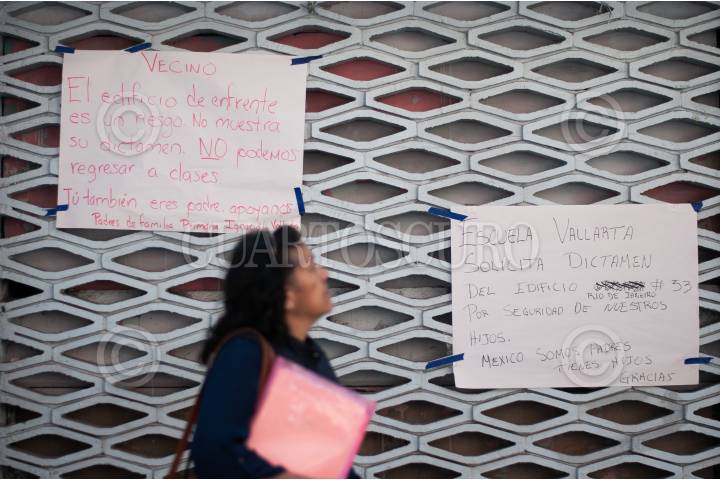 VECINO
El edificio de enfrente
es un riesgo. No muestra
su dictamen. NO podemos
regresar a clases.
Tú también eres padre. apoyanos
Padres de familia Primaria Ignacio Vallarta
ESCUELA VALLARTA
SOLICITA DICTAMEN
DEL EDIFICIO # 53
RIO DE JANEIRO
POR SEGURIDAD DE NUESTROS
HIJOS.
MEXICO SOMOS PADRES
TIENES HIJOS
GRACIAS
CUARTOSCURO